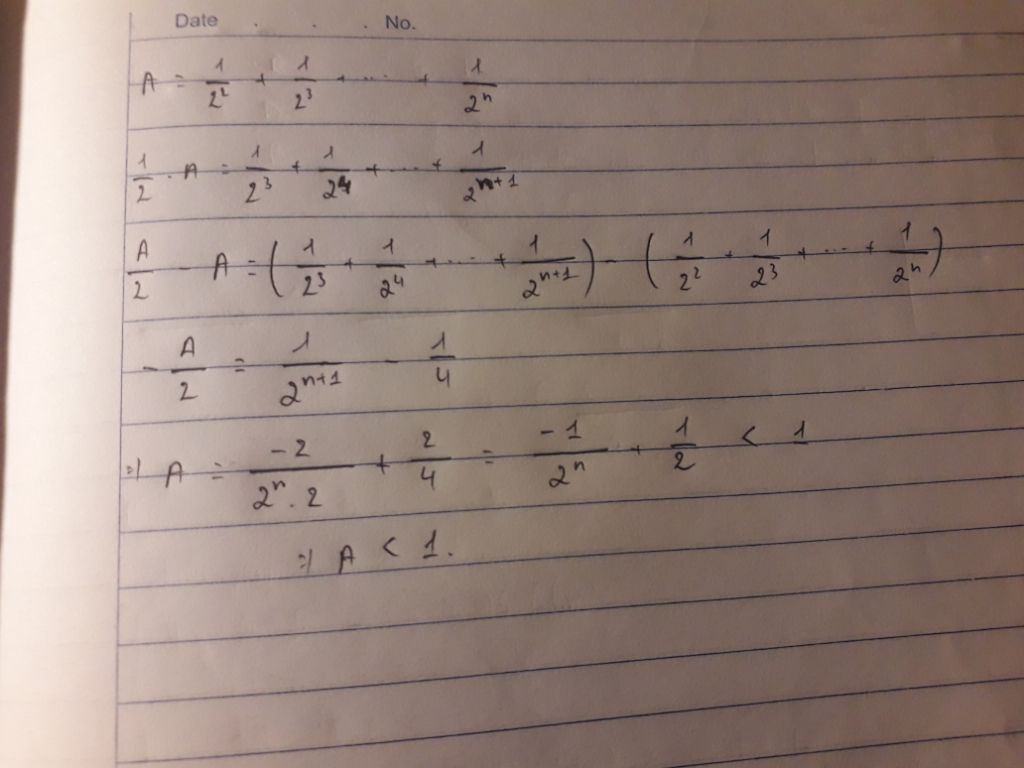 Date . . . No.
A = 1/2² + 1/2³ + ... + 1/2ⁿ
1/2 . A = 1/2³ + 1/2⁴ + ... + 1/2ⁿ⁺¹
A/2 - A = (1/2³ + 1/2⁴ + ... + 1/2ⁿ⁺¹) - (1/2² + 1/2³ + ... + 1/2ⁿ)
- A/2 = 1/2ⁿ⁺¹ - 1/4
=) A = -2/(2ⁿ . 2) + 2/4 = -1/2ⁿ + 1/2 < 1
=) A < 1.